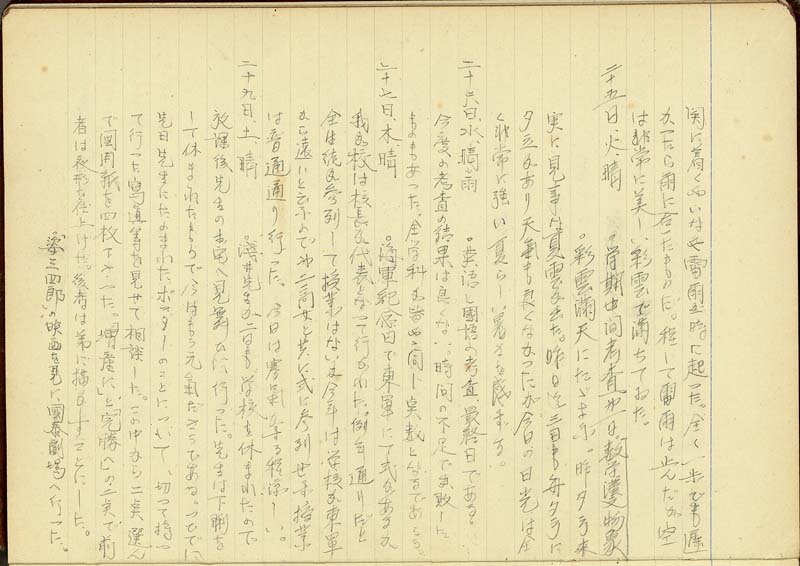 関に着くやいなや雷雨が一時に起った。全く一歩でも遅
かったら雨に合ったものだ。程して雷雨は止んだが空
は非常に美しい彩雲で満ちてゐた。
二十五日、火、晴 。学期中間考査
。彩雲満天にたゞよふ。昨夕も来
実に見事な夏雲を
夕立があり天氣も良くなかったが今日の日光は全
く非常に強い夏らしい暑さを感ずる。
二十六日、水、晴、雨 。英語と國語の考査、最終日である。
今度の考査の結果は良くない。時間の不足で失敗した
ものもあった。全学科が皆同じ点数となるであらう。
二十七日、木、晴 。海軍紀念日で東軍にて式があるが
我が校は校長が代表となって行かれた。例年通りだと
全生徒が参列して授業はないが今年は学校が東軍
から遠いと云ふので二高女と共に式に参列せず授業
は普通通り行った。今日は寒氣がする程涼しい。
二十九日、土、晴 。先生が二日も学校を休まれたので
放課後先生のお宅へ見舞ひに行った。先生は下痢を
して休まれたもので今はもう元氣ださうである。ついでに
先日先生にたのまれたポスターのことについて、切って持っ
て行った寫真等を見せて相談した。この中から二点選ん
で図用紙を四枚下さった。「増産に」と「完勝へ」の二点で前
者は長形を仕上げた。後者は弟に描かすことにした。
。「姿三四郎」の映画を見に、國泰劇場へ行った。